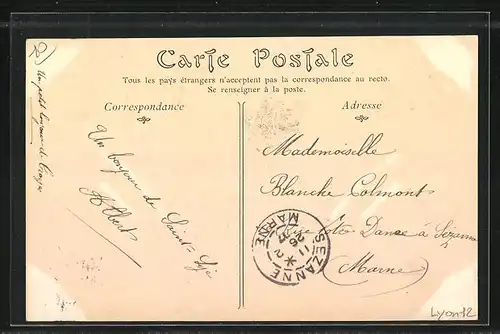 Carte Postale
Tous les pays étrangers n'acceptent pas la correspondance au recto.
Se renseigner à la poste.
Correspondance
Adresse
Un bonjour de Saint-
Albert
Mademoiselle
Blanche Colmont
à Sézanne
(Marne)
SEZANNE
MARNE
Lyon 12